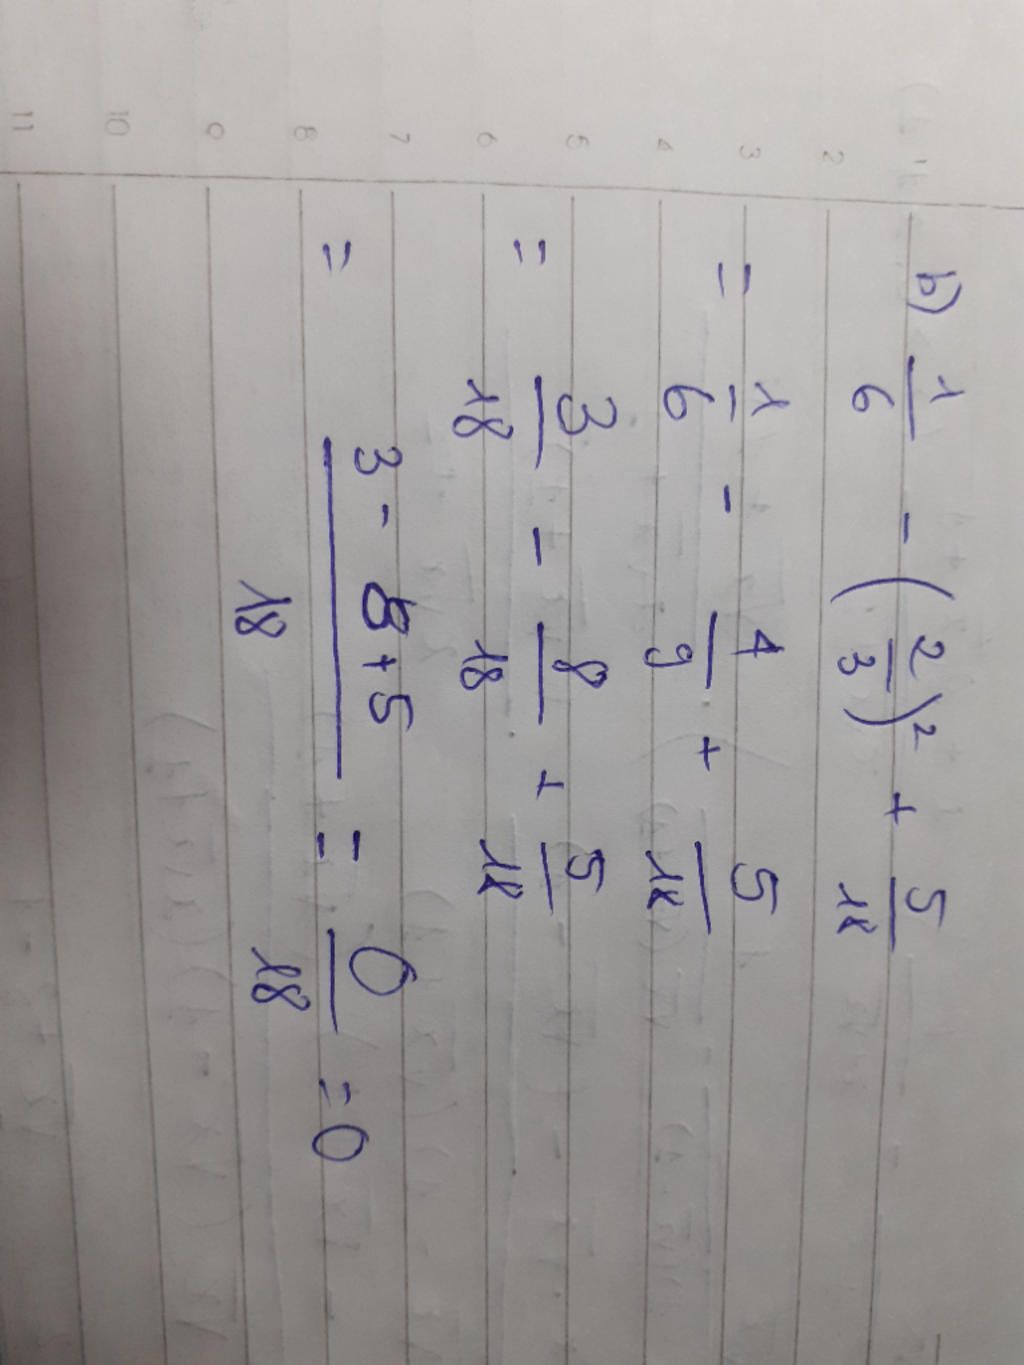 b) 1/6 - (2/3)² + 5/18
= 1/6 - 4/9 + 5/18
= 3/18 - 8/18 + 5/18
= 3 - 8 + 5/18 = 0/18 = 0
1
2
3
4
5
6
7
8
9
10
11